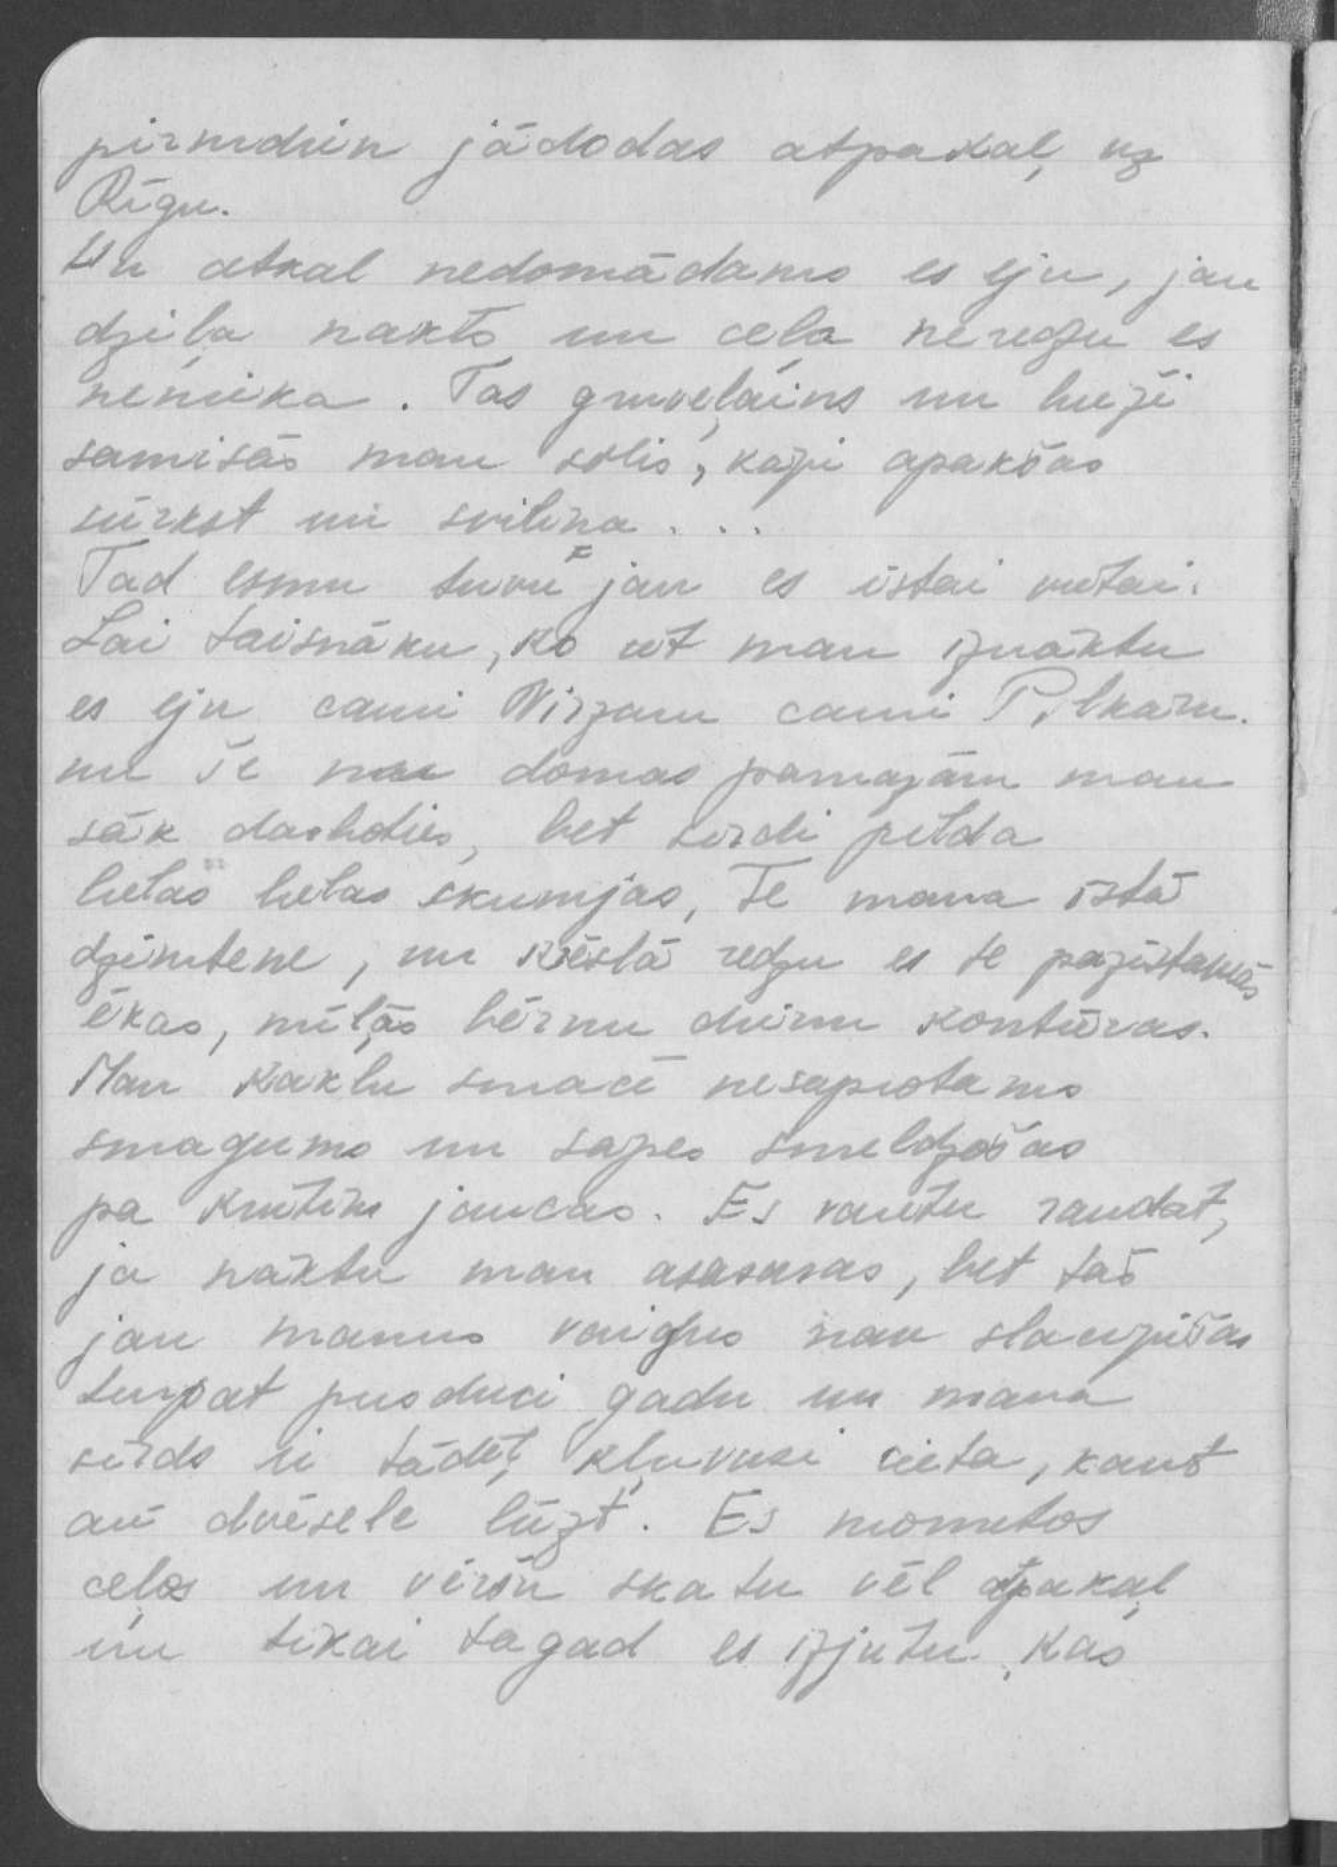 pirmdien jādodas atpakaļ uz
Rīgu.
Un atkal nedomādams es eju, jau
dziļa nakts un ceļa neredzu es
nemiera. Tas gruveļains un bieži
samisās man solis, kāji apakšas
sūrkst un svilina...
Tad esmu tuvu jau es īstai vietai.
Lai taisnāku, ko iet man iznāktu
es eju cauri Virzam cauri
un še nau domas pamazām man
sāk darboties, bet sirdi pilda
lielas lielas skumjas, Te mana īstā
dzimtene, un krēslā redzu es te pazīstamās
ēkas, mīļās bērnu dienu kontūras.
Man kaklu smacē nesaprotams
smagums un sāpes smeldzošas
pa krūtīm jaucas. Es varētu raudāt,
ja nāktu man asasaras, bet tās
jau manus vaigus nau slacījušas
turpat pusduci gadu un mana
sirds ir tādēļ kļuvusi cieta, kaut
arī dvēsele lūzt. Es nometos
ceļos un vēršu skatu vēl atpakaļ
un tikai tagad es izjutu, kas